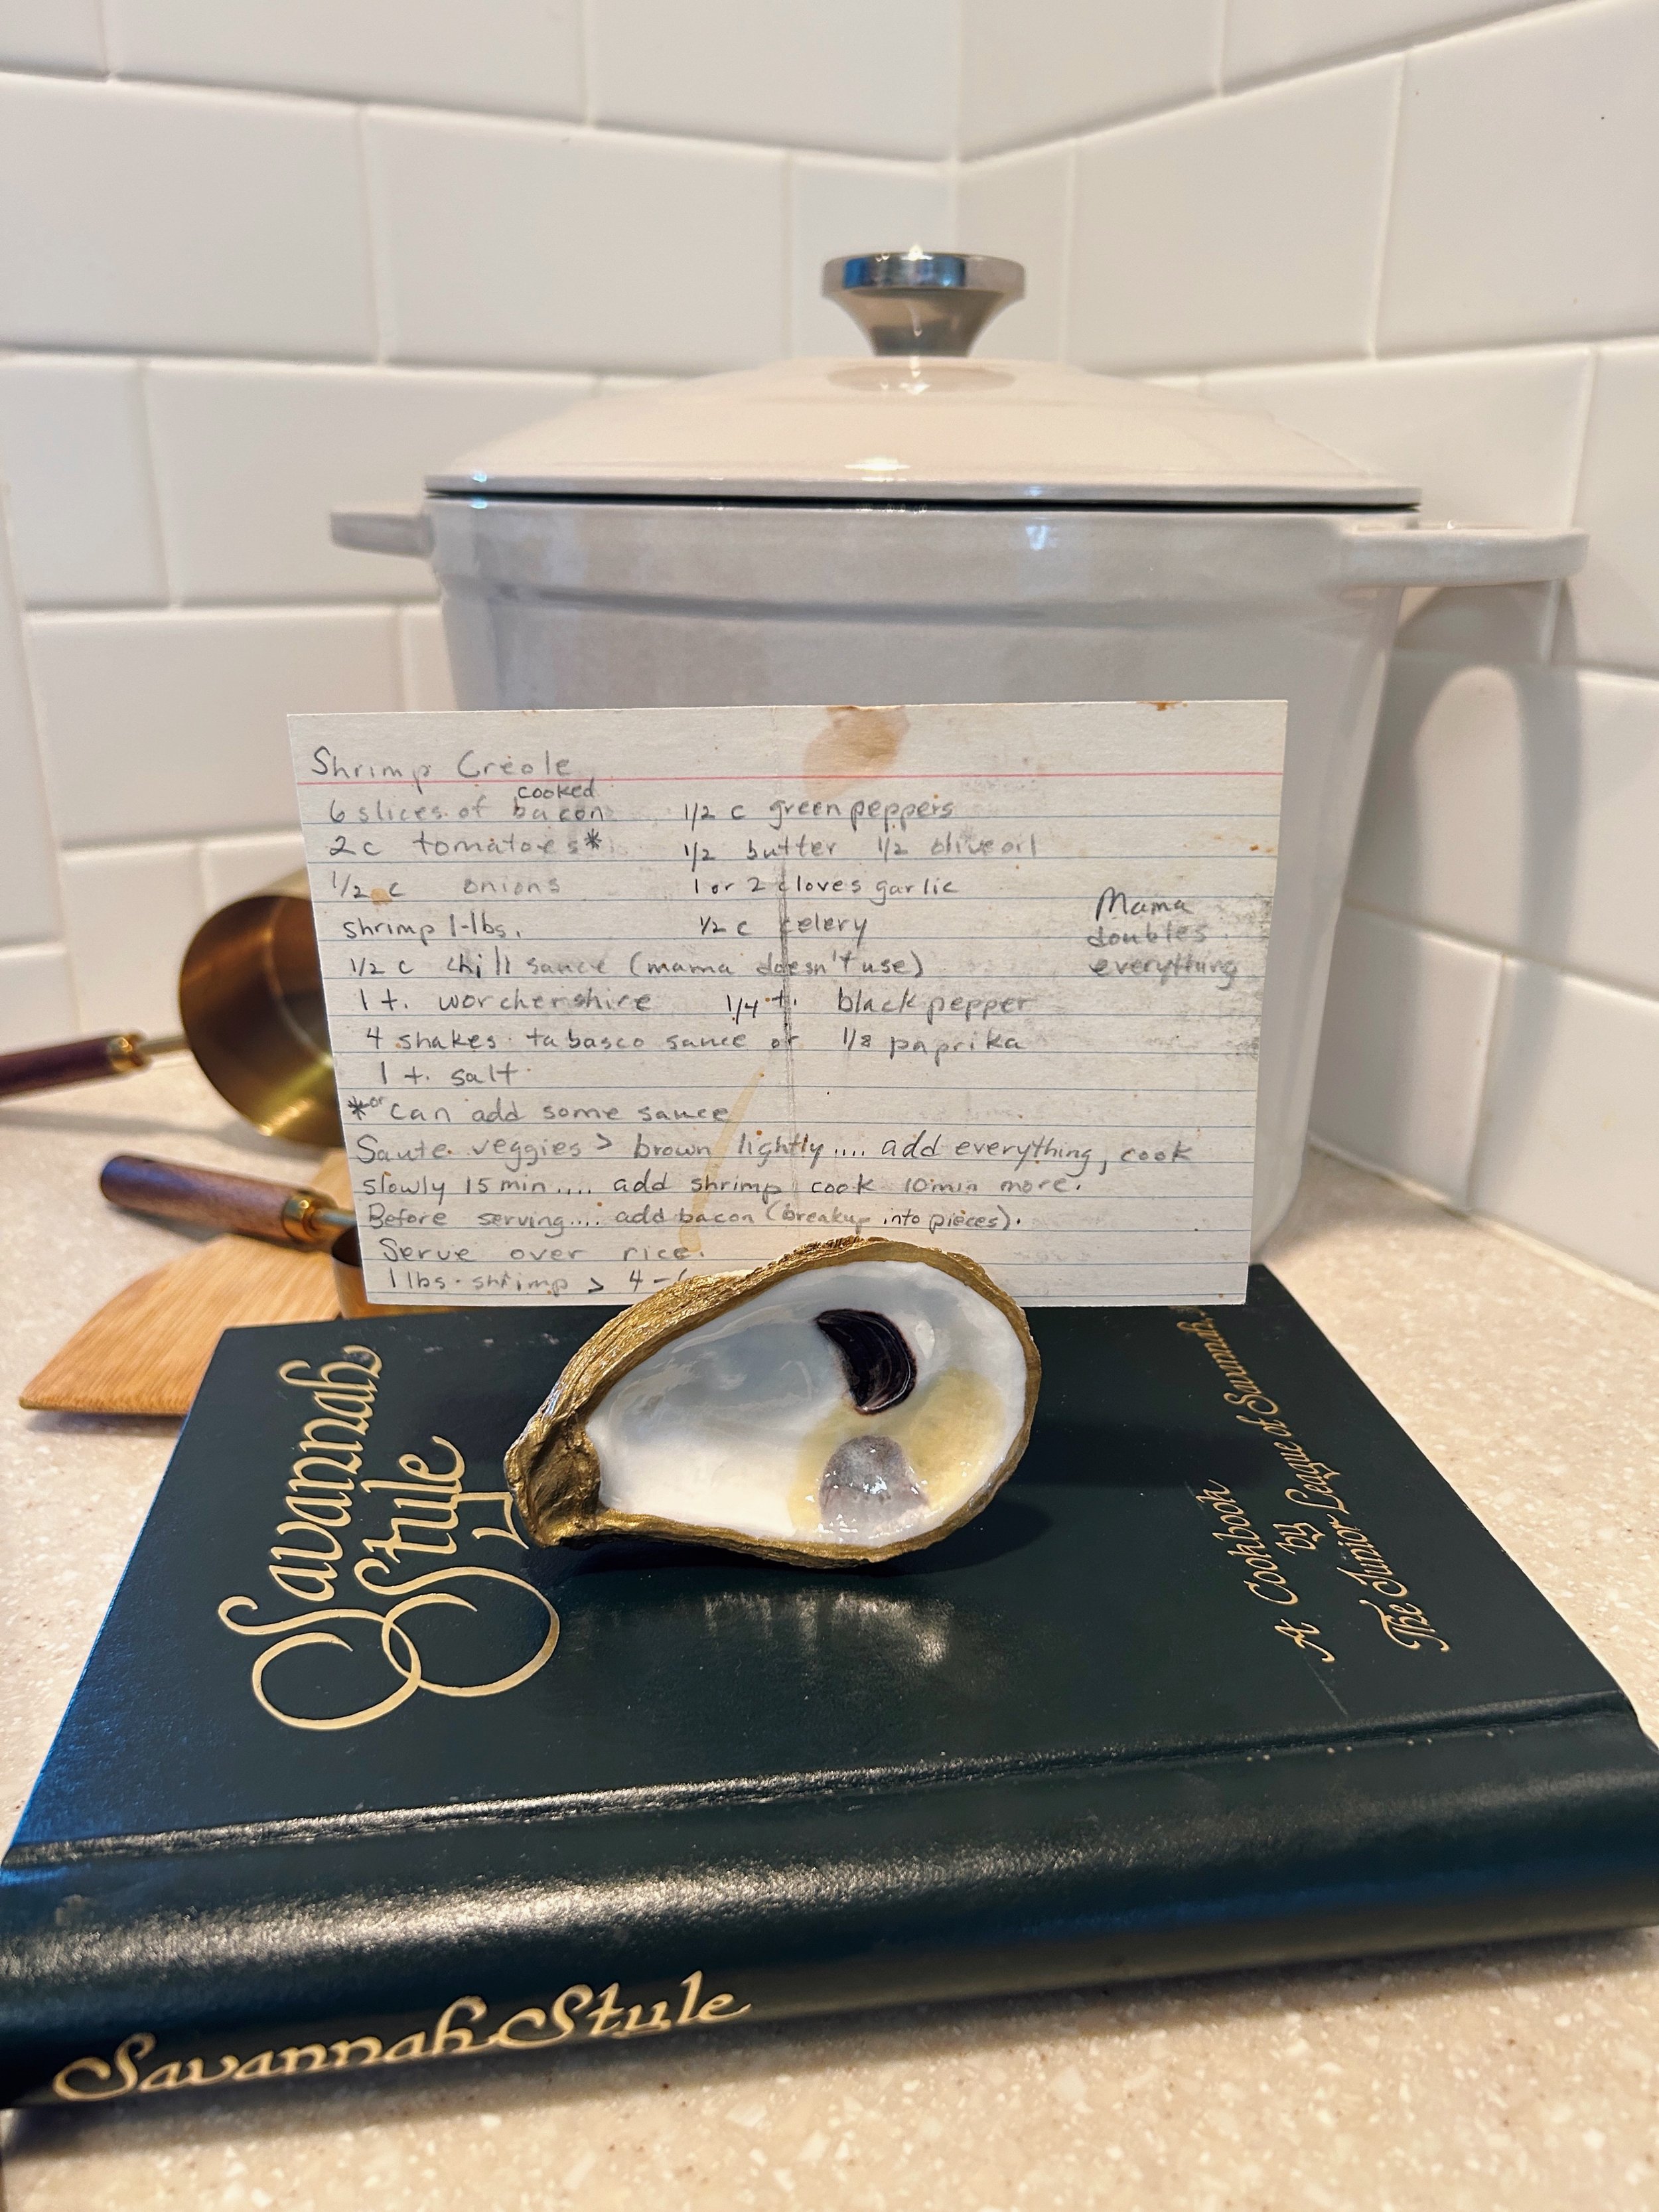 Shrimp Creole
cooked
6 slices of bacon 1/2 c green peppers
2 c tomatoes* 1/2 butter 1/2 olive oil
1/2 c onions 1 or 2 cloves garlic
shrimp 1-lbs. 1/2 c celery
Mama
doubles
everything
1/2 c chili sauce (mama doesn't use)
1 t. worchershire 1/4 t. black pepper
4 shakes tabasco sauce or 1/8 paprika
1 t. salt
*or can add some sauce
Saute veggies > brown lightly.... add everything, cook
slowly 15 min.... add shrimp cook 10 min more.
Before serving.... add bacon (breakup into pieces).
Serve over rice.
1 lbs. shrimp > 4-
Savannah
Style
A Cookbook
by
The Junior League of Savannah,
Savannah Style